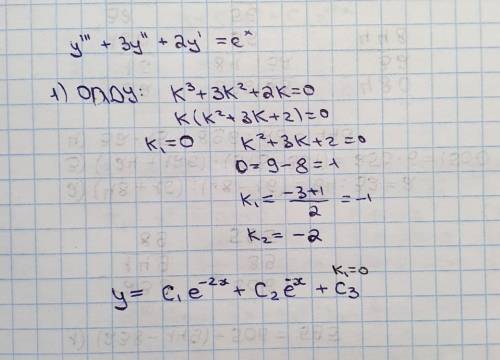 y''' + 3y'' + 2y' = e^x
1) ОЛДУ: K³+3K²+2K=0
K(K²+3K+2)=0
K₁=0 K²+3K+2=0
D=9-8=1
K₁= (-3+1)/2 = -1
K₂= -2
K₁=0
y = C₁e^(-2x) + C₂e^(-x) + C₃